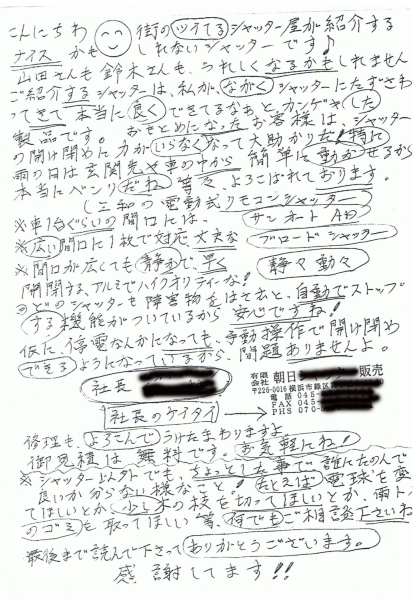 こんにちわ 街のツイてるシャッター屋が紹介する
ナイスかも しれないシャッターです♪
山田さんも鈴木さんも、うれしくなるかもしれません
ご紹介するシャッターは、私が、ながくシャッターにたずさわ
ってきて本当に良くできてるなあと、カンゲキした
製品です。 おもとめになったお客様は、シャッター
の開け閉めに力がいらなくなって大助かりだ！特に
雨の日は玄関先や車の中から 簡単に動かせるから
本当にベンリだね 等々、よろこばれております。
(三和の電動式リモコンシャッター
※車1台ぐらいの間口には、 サンオートAD
※広い間口に1枚で対応丈夫な ブロードシャッター
※間口が広くても静かで、早く 静々動々
開閉する、アルミでハイクオリティーな！
どのシャッターも障害物をはさむと、自動でストップ
する機能がついているから 安心ですね！
仮に、停電なんかになっても、手動操作で開け閉め
できるようになっているから、問題ありませんよ。
社長
有限会社 朝日 販売
〒226-0016 横浜市緑区
電話 045-
FAX 045-
PHS 070-
社長のケイタイ
修理も、よろこんでうけたまわりますよ
御見積は無料です。お気軽にね！
※シャッター以外でも、ちょっとした事で誰にたのんで
良いか分らない様なこと！たとえば電球を変え
てほしいとか、少し木の枝を切ってほしいとか、雨トイ
のゴミを取ってほしい等、何でもご相談下さいね
最後まで読んで下さって ありがとうございます。
感謝してます！！